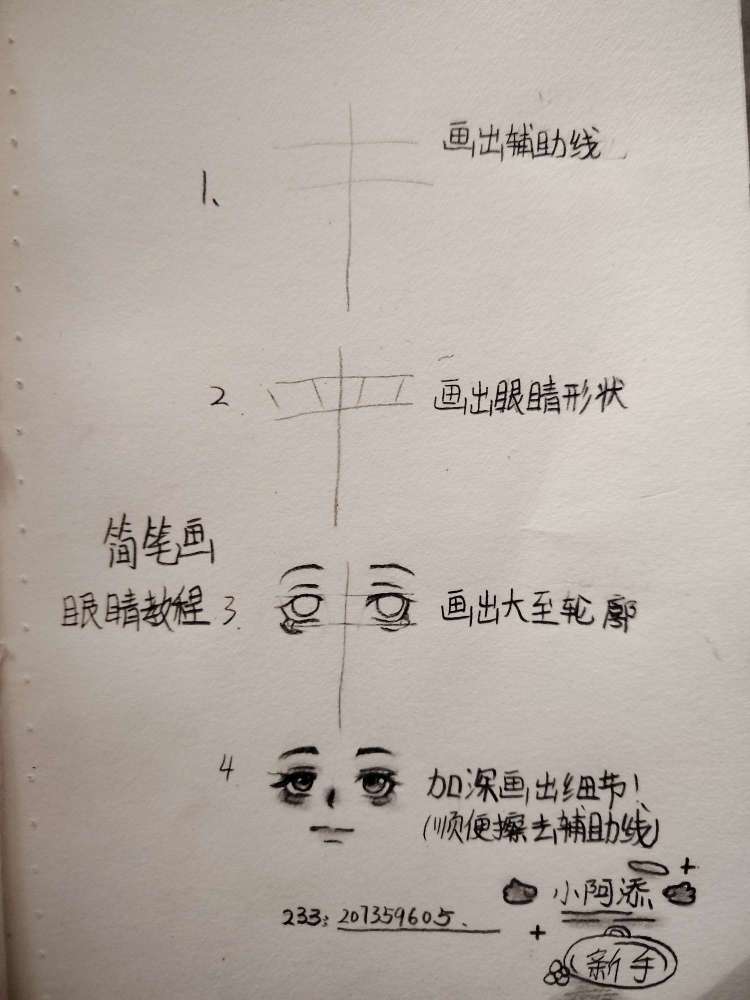 1、
画出辅助线
2.
画出眼睛形状
简笔画
眼睛教程
3.
画出大至轮廓
4
加深画出细节!
(顺便擦去辅助线)
小阿添
233:207359605.
新手